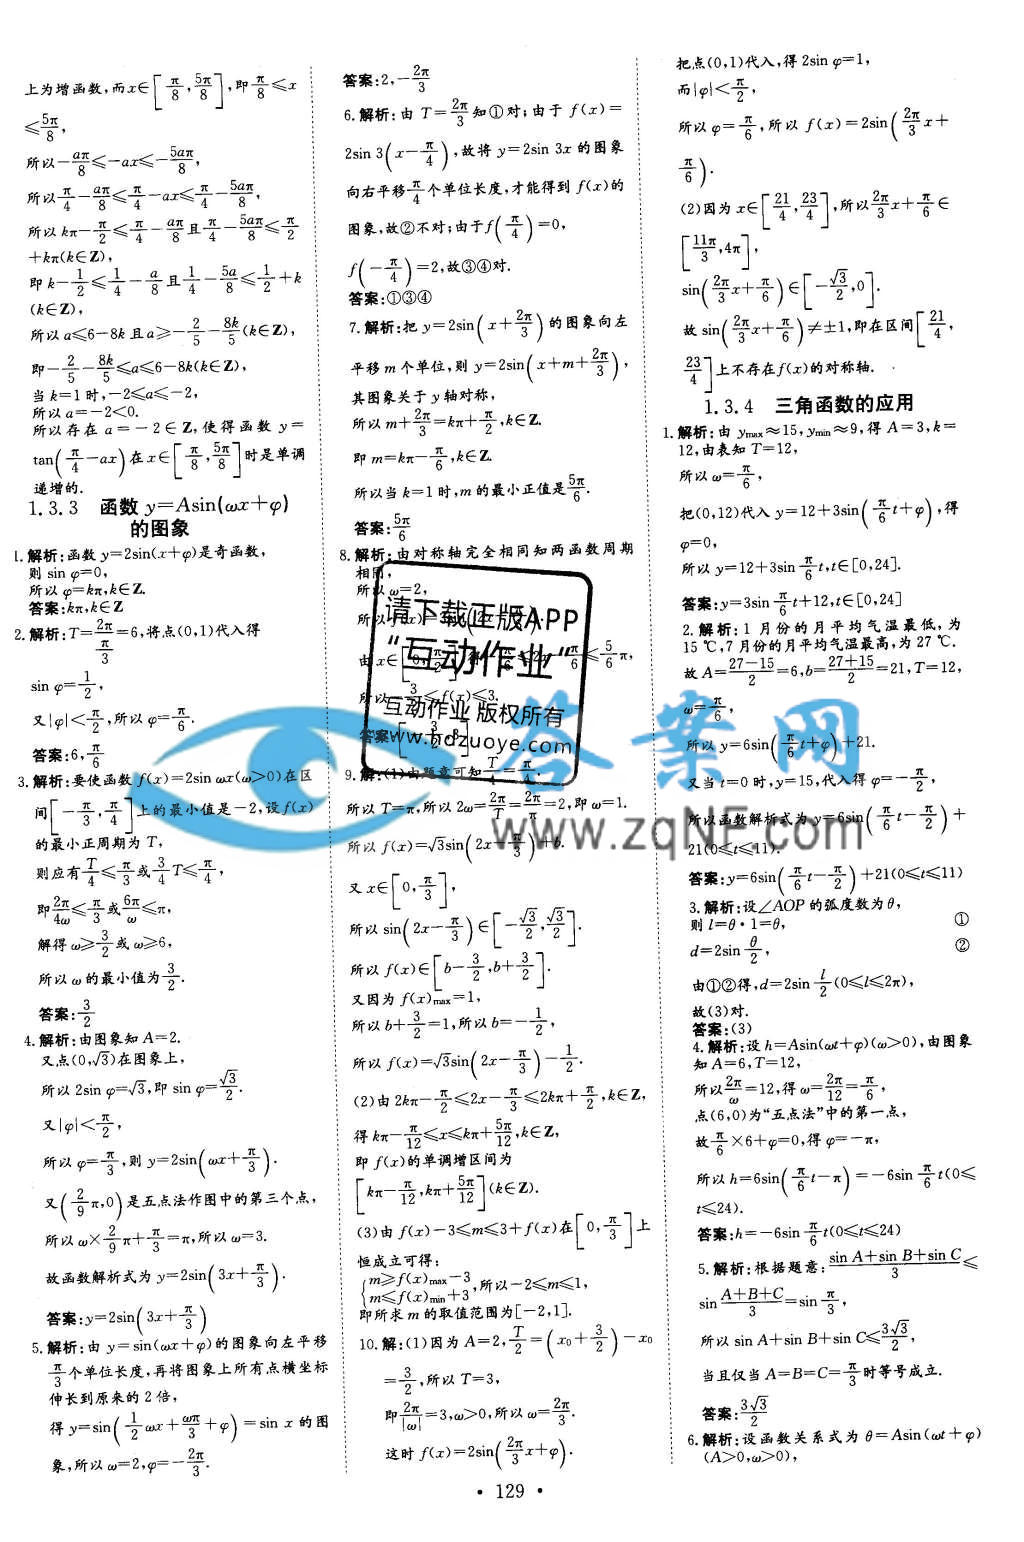 上为增函数,而x∈[π/8,5π/8],即π/8≤x
≤5π/8,
所以-aπ/8≤-ax≤-5aπ/8,
所以π/4-aπ/8≤π/4-ax≤π/4-5aπ/8,
所以kπ-π/2≤π/4-aπ/8且π/4-5aπ/8≤π/2
+kπ(k∈Z),
即k-1/2≤1/4-a/8且1/4-5a/8≤1/2+k
(k∈Z),
所以a≤6-8k且a≥-2/5-8k/5(k∈Z),
即-2/5-8k/5≤a≤6-8k(k∈Z),
当k=1时,-2≤a≤-2,
所以a=-2<0.
所以存在a=-2∈Z,使得函数y=
tan(π/4-ax)在x∈[π/8,5π/8]时是单调
递增的.
1.3.3 函数y=Asin(ωx+φ)
的图象
1.解析:函数y=2sin(x+φ)是奇函数,
则sin φ=0,
所以φ=kπ,k∈Z.
答案:kπ,k∈Z
2.解析:T=2π/(π/3)=6,将点(0,1)代入得
sin φ=1/2,
又|φ|<π/2,所以φ=π/6.
答案:6,π/6
3.解析:要使函数f(x)=2sin ωx(ω>0)在区
间[-π/3,π/4]上的最小值是-2,设f(x)
的最小正周期为T,
则应有T/4≤π/3或3/4T≤π/4,
即2π/4ω≤π/3或6π/ω≤π,
解得ω≥3/2或ω≥6,
所以ω的最小值为3/2.
答案:3/2
4.解析:由图象知A=2.
又点(0,√3)在图象上,
所以2sin φ=√3,即sin φ=√3/2.
又|φ|<π/2,
所以φ=π/3,则y=2sin(ωx+π/3).
又(2/9π,0)是五点法作图中的第三个点,
所以ω×2/9π+π/3=π,所以ω=3.
故函数解析式为y=2sin(3x+π/3).
答案:y=2sin(3x+π/3)
5.解析:由y=sin(ωx+φ)的图象向左平移
π/3个单位长度,再将图象上所有点横坐标
伸长到原来的2倍,
得y=sin(1/2ωx+ωπ/3+φ)=sin x的图
象,所以ω=2,φ=-2π/3.
答案:2,-2π/3
6.解析:由T=2π/3知①对;由于f(x)=
2sin 3(x-π/4),故将y=2sin 3x的图象
向右平移π/4个单位长度,才能得到f(x)的
图象,故②不对;由于f(π/4)=0,
f(-π/4)=2,故③④对.
答案:①③④
7.解析:把y=2sin(x+2π/3)的图象向左
平移m个单位,则y=2sin(x+m+2π/3),
其图象关于y轴对称,
所以m+2π/3=kπ+π/2,k∈Z.
即m=kπ-π/6,k∈Z.
所以当k=1时,m的最小正值是5π/6.
答案:5π/6
8.解析:由对称轴完全相同知两函数周期
相同,
所以ω=2,
所以f(x)=3
由x∈[0,π/2] π/6≤5/6π,
所以-3/2≤f(x)≤3.
答案:
请下载正版APP
“互动作业”
互动作业 版权所有
www.hdzuoye.com
9.解:(1)由题意可知T/4=π/4.
所以T=π,所以2ω=2π/T=2π/π=2,即ω=1.
所以f(x)=√3sin(2x-π/3)+b.
又x∈[0,π/3],
所以sin(2x-π/3)∈[-√3/2,√3/2].
所以f(x)∈[b-3/2,b+3/2].
又因为f(x)max=1,
所以b+3/2=1,所以b=-1/2,
所以f(x)=√3sin(2x-π/3)-1/2.
(2)由2kπ-π/2≤2x-π/3≤2kπ+π/2,k∈Z,
得kπ-π/12≤x≤kπ+5π/12,k∈Z,
即f(x)的单调增区间为
[kπ-π/12,kπ+5π/12](k∈Z).
(3)由f(x)-3≤m≤3+f(x)在[0,π/3]上
恒成立可得:
{m≥f(x)max-3
m≤f(x)min+3,所以-2≤m≤1,
即所求m的取值范围为[-2,1].
10.解:(1)因为A=2,T/2=(x0+3/2)-x0
=3/2,所以T=3,
即2π/|ω|=3,ω>0,所以ω=2π/3.
这时f(x)=2sin(2π/3x+φ).
把点(0,1)代入,得2sin φ=1,
而|φ|<π/2,
所以φ=π/6,所以f(x)=2sin(2π/3x+
π/6).
(2)因为x∈[21/4,23/4],所以2π/3x+π/6∈
[11π/3,4π],
sin(2π/3x+π/6)∈[-√3/2,0].
故sin(2π/3x+π/6)≠±1,即在区间[21/4,
23/4]上不存在f(x)的对称轴.
1.3.4 三角函数的应用
1.解析:由ymax≈15,ymin≈9,得A=3,k=
12,由表知T=12,
所以ω=π/6,
把(0,12)代入y=12+3sin(π/6t+φ),得
φ=0,
所以y=12+3sin π/6t,t∈[0,24].
答案:y=3sin π/6t+12,t∈[0,24]
2.解析:1月份的月平均气温最低,为
15℃,7月份的月平均气温最高,为27℃.
故A=(27-15)/2=6,b=(27+15)/2=21,T=12,
ω=π/6,
所以y=6sin(π/6t+φ)+21.
又当t=0时,y=15,代入得φ=-π/2,
所以函数解析式为y=6sin(π/6t-π/2)+
21(0≤t≤11).
答案:y=6sin(π/6t-π/2)+21(0≤t≤11)
3.解析:设∠AOP的弧度数为θ,
则l=θ·1=θ, ①
d=2sin θ/2, ②
由①②得,d=2sin l/2(0≤l≤2π),
故(3)对.
答案:(3)
4.解析:设h=Asin(ωt+φ)(ω>0),由图象
知A=6,T=12,
所以2π/ω=12,得ω=2π/12=π/6,
点(6,0)为“五点法”中的第一点,
故π/6×6+φ=0,得φ=-π,
所以h=6sin(π/6t-π)=-6sin π/6t(0≤
t≤24).
答案:h=-6sin π/6t(0≤t≤24)
5.解析:根据题意:(sin A+sin B+sin C)/3≤
sin (A+B+C)/3=sin π/3,
所以sin A+sin B+sin C≤3√3/2,
当且仅当A=B=C=π/3时等号成立.
答案:3√3/2
6.解析:设函数关系式为θ=Asin(ωt+φ)
(A>0,ω>0),
答案网
www.zqNF.com
· 129 ·